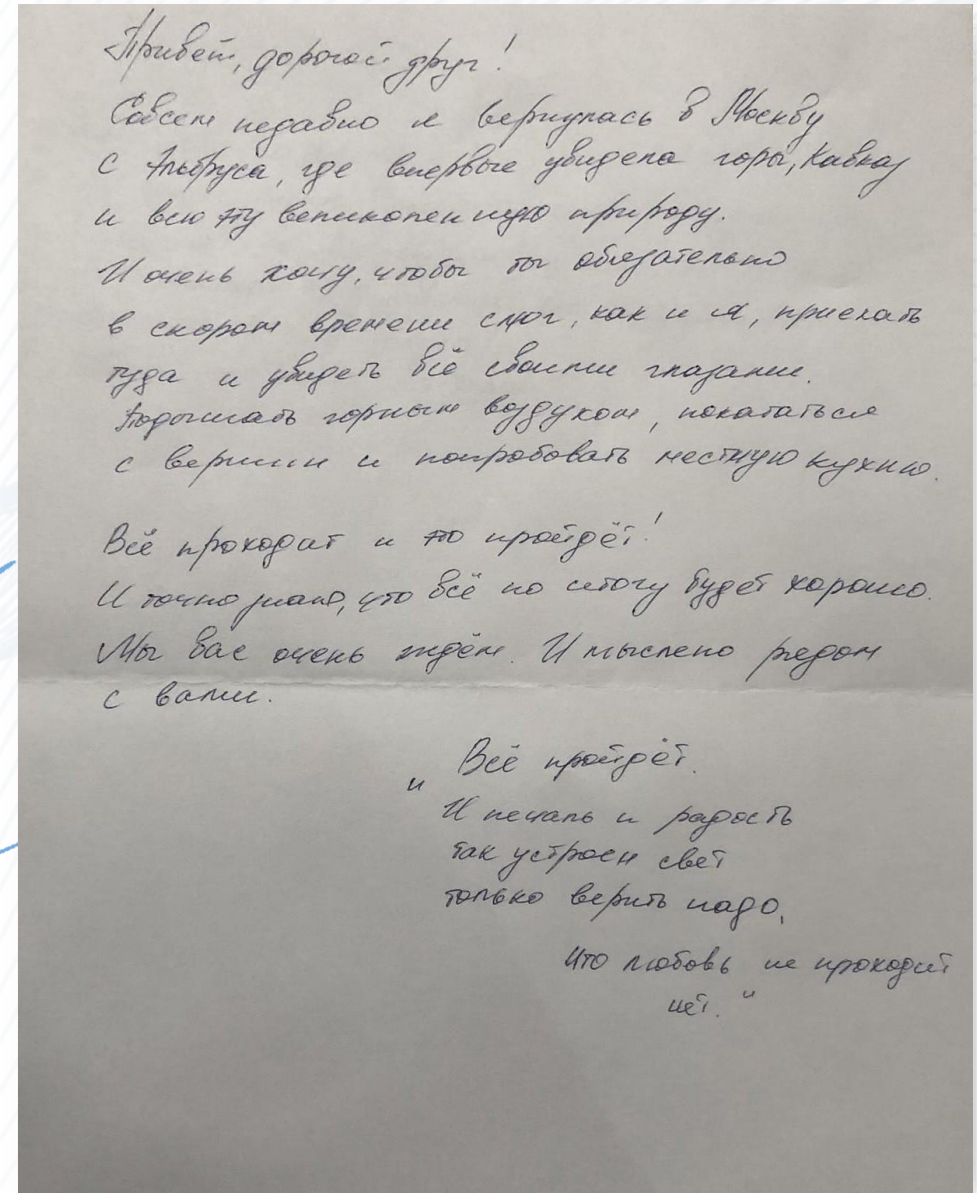 Привет, дорогой друг!
Совсем недавно я вернулась в Москву
с Эльбруса, где впервые увидела горы, Кавказ
и всю эту великолепную природу.
И очень хочу, чтобы ты обязательно
в скором времени смог, как и я, приехать
туда и увидеть всё своими глазами.
Подышать горным воздухом, покататься
с вершин и попробовать местную кухню.
Всё проходит и это пройдёт!
И точно знаю, что всё по итогу будет хорошо.
Мы вас очень ждём. И мыслено рядом
с вами.
"Всё пройдёт.
И печаль и радость
так устроен свет
только верить надо,
что любовь не проходит
нет."